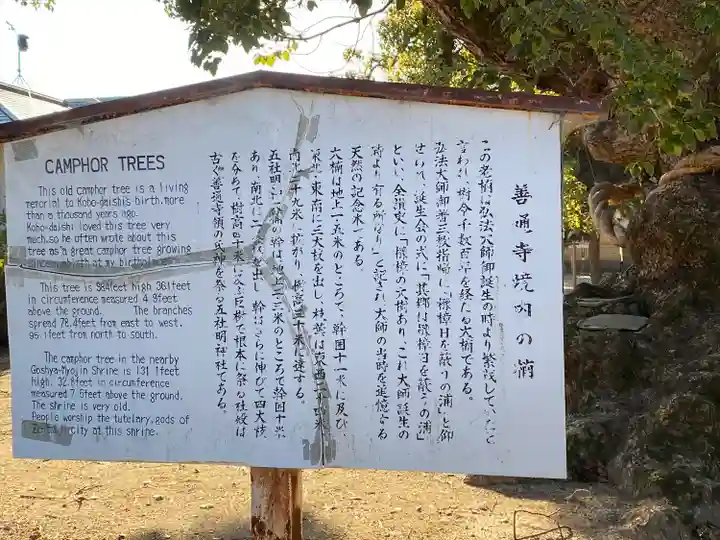 CAMPHOR TREES
This old camphor tree is a living
memorial to Kobo-daishi's birth, more
than a thousand years ago.
Kobo-daishi loved this tree very
much, so he often wrote about this
tree as "a great camphor tree growing
birth at my birthplace
This tree is 98.4feet high 36.1feet
in circumference measured 4.9feet
above the ground. The branches
spread 78.4feet from east to west.
95.1feet from north to south.
The camphor tree in the nearby
Goshya-Myojin Shrine is 131.1feet
high. 32.8feet in circumference
measured 7.5feet above the ground.
The shrine is very old.
People worship the tutelary, gods of
city at this shrine.
善通寺境内の楠
この老楠は弘法大師御誕生の時より繁茂していたと
言われ、樹令千数百年を経たる大楠である。
弘法大師御著三教指帰に「豫樟日を蔽うの浦」と仰
せられ、誕生会の式に「其郷は豫樟日を蔽うの浦」
といい、全讃史に「豫樟の大樹あり、これ大師誕生の
時より有る所なり」と記され、大師の当時を追憶する
天然の記念木である
大楠は地上一・五米のところで、幹囲十一米に及び、
東北、東南に三大枝を出し、枝葉は東西二十四米
南北二十九米に拡がり、樹高三十米に達する。
五社明神の楠の幹は地上二・三米のところで幹囲十米
あり、南北に二大枝を出し、幹はさらに伸びて四大枝
を分ちて、樹高四十米に及ぶ巨樹で根本に祭る社殿は
古くから善通寺領の氏神を祭る五社明神社である。